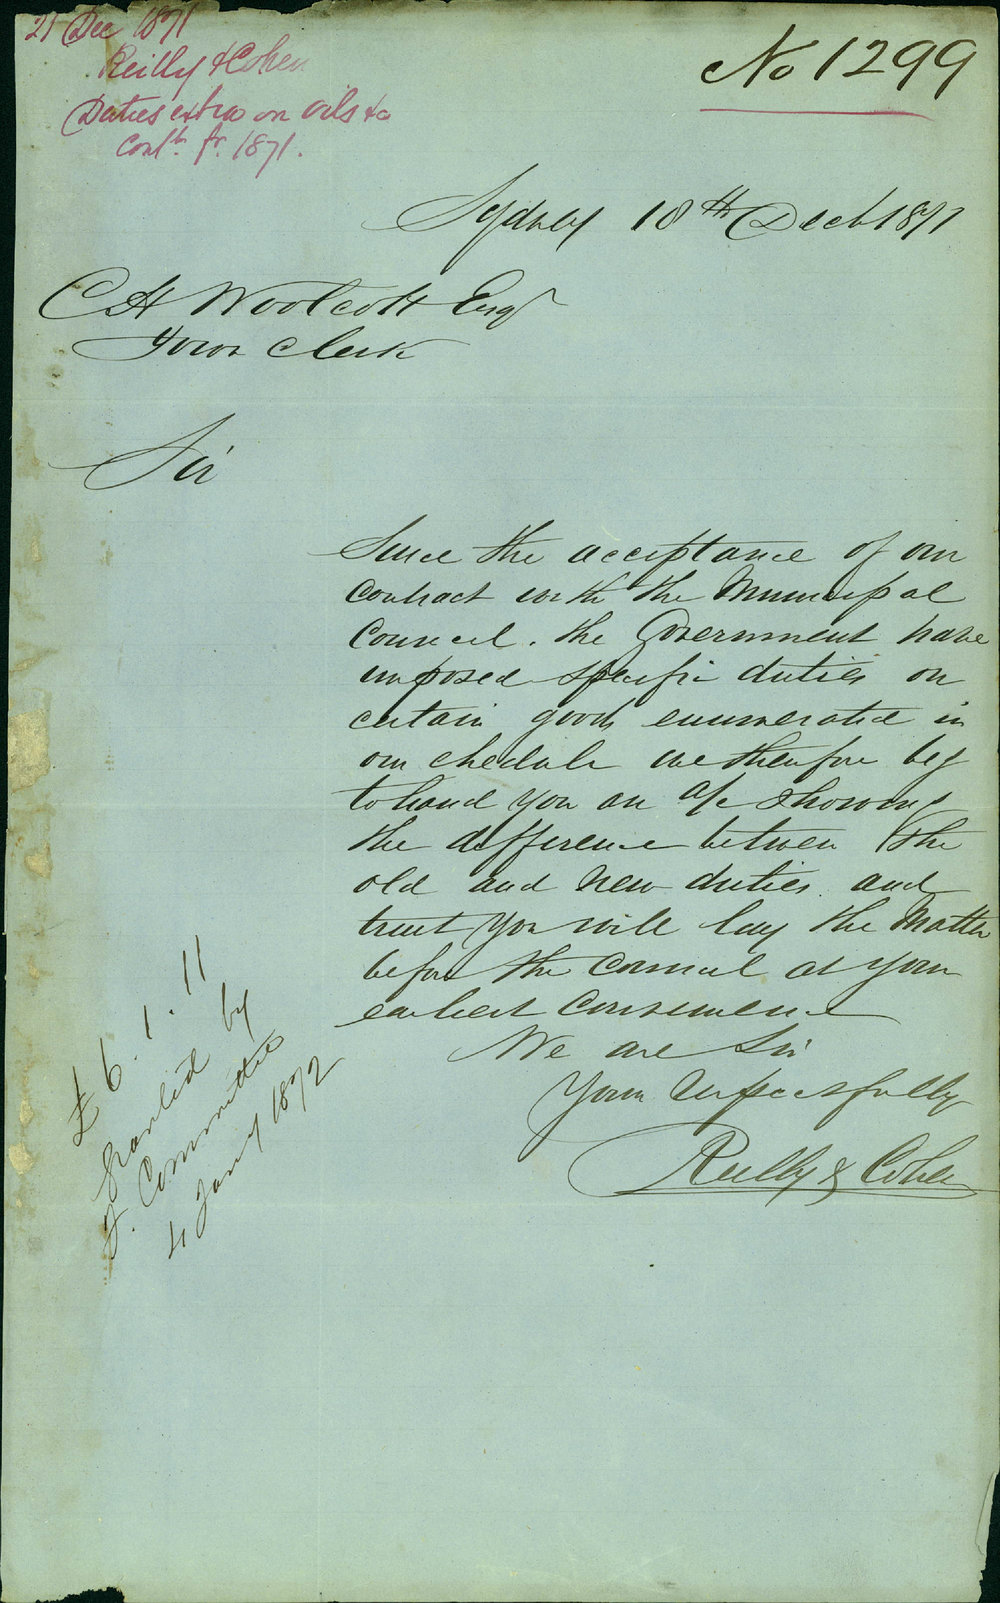 21 Dec 1871
Reilly & Cohen
Duties extra on oils &c
Cont. fr. 1871.
No 1299
Sydney 18th Decb 1871
C H Woolcott Esqr
Town Clerk
Sir
Since the acceptance of our
Contract with the Municipal
Council. the Government have
imposed specific duties on
certain goods enumerated in
our chedule we therefore beg
to hand you an a/c showing
the difference between the
old and new duties and
trust you will lay the Matter
before the Council at your
earliest Convenience
We are Sir
Yours Respectfully
Reilly & Cohen
£6.1.11
Granted by
F. Committee
4 Jany 1872